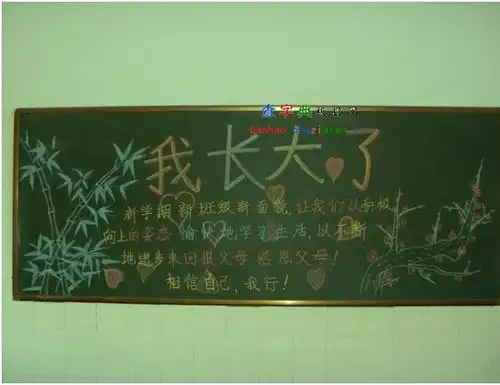 查字典
我长大了
新学期新班级新面貌,让我们以积极
向上的姿态愉快地学习生活,以不断
地进步来回报父母感恩父母!
相信自己,我行!